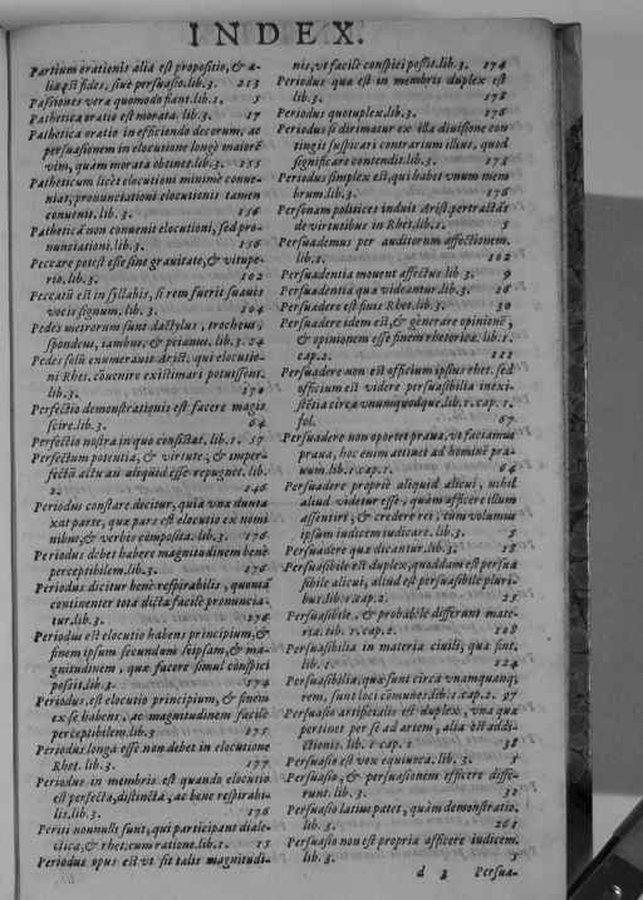 INDEX.
Partium orationis alia est propositio, & a-
lia q̃si fides, siuè persuasio. lib. 3. 213
Passiones verae quomodo fiant. lib. 1. 5
Pathetica oratio est morata. lib. 3. 17
Pathetica oratio in efficiendo decorum, ac
persuasionem in elocutione longè maiorẽ
vim, quàm morata obtinet. lib. 3. 155
Patheticum licèt elocutioni minimè conue-
niat, pronunciationi elocutionis tamen
conuenit. lib. 3. 156
Pathetica non conuenit elocutioni, sed pro-
nunciationi. lib. 3. 156
Peccare potest esse sine grauitate, & vitupe-
rio. lib. 3. 102
Peccatũ est in syllabis, si rem fuerit suauis
vocis signum. lib. 3. 104
Pedes metrorum sunt dactylus, trocheus,
spondeus, iambus, & peianus. lib. 3. 24
Pedes solũ enumerauit Arist. qui elocutio-
ni Rhet. cõuenire existimari potuissent.
lib. 3. 170
Perfectio demonstrationis est facere magis
scire. lib. 3. 64
Perfectio nostra in quo consistat. lib. 1. 57
Perfectum potentia, & virtute, & imper-
fectũ actu an aliquid esse repugnet. lib.
2. 146
Periodus constare dicitur, quia vna dunta
xat parte, quae pars est elocutio ex nomi
nibus, & verbis composita. lib. 3. 176
Periodus debet habere magnitudinem benè
perceptibilem. lib. 3. 176
Periodus dicitur benè respirabilis, quoniã
continenter tota dicta facilè pronuncia-
tur. lib. 3. 176
Periodus est elocutio habens principium, &
finem ipsum secundum seipsam, & ma-
gnitudinem, quae facere simul conspici
possit. lib. 3. 174
Periodus, est elocutio principium, & finem
ex se habens, ac magnitudinem facilè
perceptibilem. lib. 3 175
Periodus longa esse non debet in elocutione
Rhet. lib. 3. 177
Periodus in membris est quando elocutio
est perfecta, distincta, ac bene respirabi-
lis. lib. 3. 176
Periti nonnulli sunt, qui participant diale-
ctica, & rhet. cum ratione. lib. 1. 15
Periodus opus est vt sit talis magnitudi-
nis, vt facilè conspici possit. lib. 3. 174
Periodus quae est in membris duplex est
lib. 3. 178
Periodus quotuplex. lib. 3. 176
Periodus si dirimatur ex illa diuisione con
tingit suspicari contrarium illius, quod
significare contendit. lib. 3. 175
Periodus simplex est, qui habet vnum mem
brum. lib. 3. 176
Personam politices induit Arist. pertractãs
de virtutibus in Rhet. lib. 1. 5
Persuademus per auditorum affectionem.
lib. 1. 102
Persuadentia mouent affectus lib 3. 9
Persuadentia quae videantur. lib. 3. 16
Persuadere est finis Rhet. lib. 3. 30
Persuadere idem est, & generare opinionẽ,
& opinionem esse finem rhetoricae. lib. 1.
cap. 2. 112
Persuadere non est officium ipsius rhet. sed
officium est videre persuasibilia inexi-
stẽtia circa vnumquodque. lib. 1. cap. 1.
fol. 67
Persuadere non oportet praua, vt faciamus
praua, hoc enim attinet ad hominẽ pra-
uum. lib. 1. cap. 1. 64
Persuadere propriè aliquid alicui, nihil
aliud videtur esse, quàm afficere illum
assentiri, & credere rei, cum volumus
ipsum iudicem iudicare. lib. 3. 5
Persuadere quae dicantur. lib. 3. 18
Persuasibile est duplex, quoddam est persua
sibile alicui, aliud est persuasibile pluri-
bus. lib. 1. cap. 2. 25
Persuasibile, & probabile differunt mate-
ria. lib. 1. cap. 2. 108
Persuasibilia in materia ciuili, quae sint.
lib. 1. 124
Persuasibilia, quae sunt circa vnamquamq;
rem, sunt loci cõmunes. lib. 1. cap. 2. 97
Persuasio artificialis est duplex, vna quae
pertinet per se ad artem, alia est addi-
ctionis. lib. 1 cap. 1 38
Persuasio est vox equiuoca. lib. 3. 5
Persuasio, & persuasionem efficere diffe-
runt. lib. 3. 32
Persuasio latius patet, quàm demonstratio.
lib. 3. 261
Persuasio non est propria afficere iudicem.
lib. 3. 5
d 3 Persua-